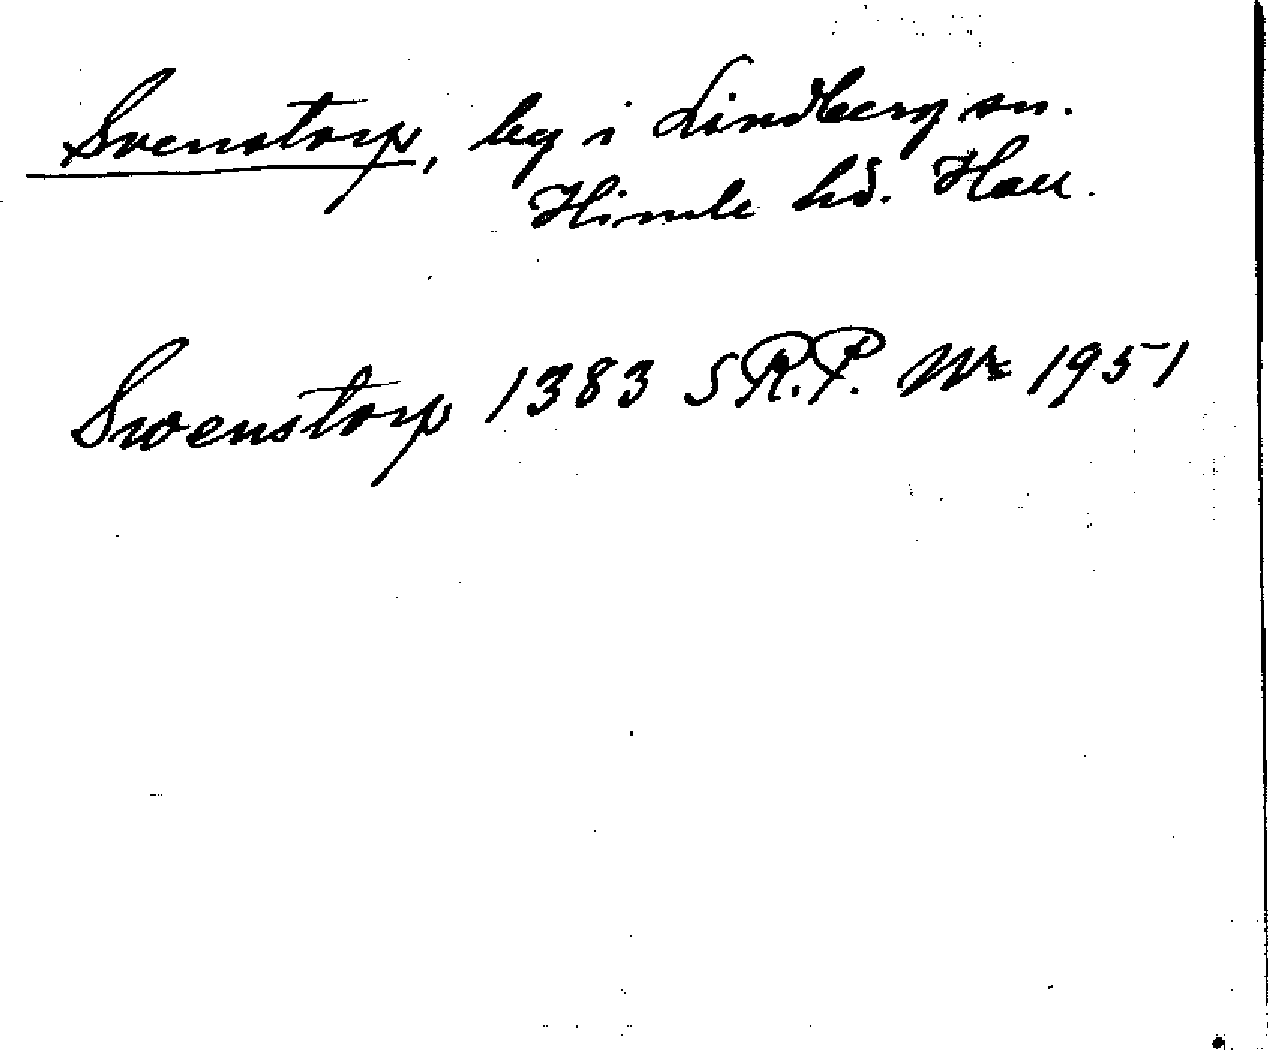 Svenstorp, by i Lindberg sn.
Himle hd. Hall.
Swenstorp 1383 SRP. Nr 1951